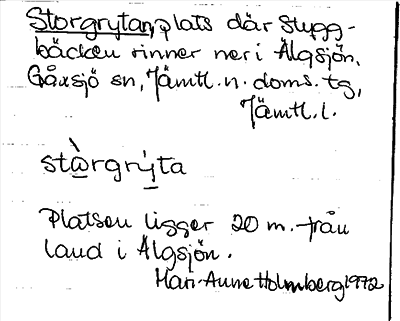 Storgrytan, plats där Stygg-
bäcken rinner ner i Älgsjön,
Gåxsjö sn, Jämtl. n. doms. tg,
Jämtl. l.
stɷ̀rgrýta
Platsen ligger 20 m. från
land i Älgsjön.
Mari-Anne Holmberg 1972